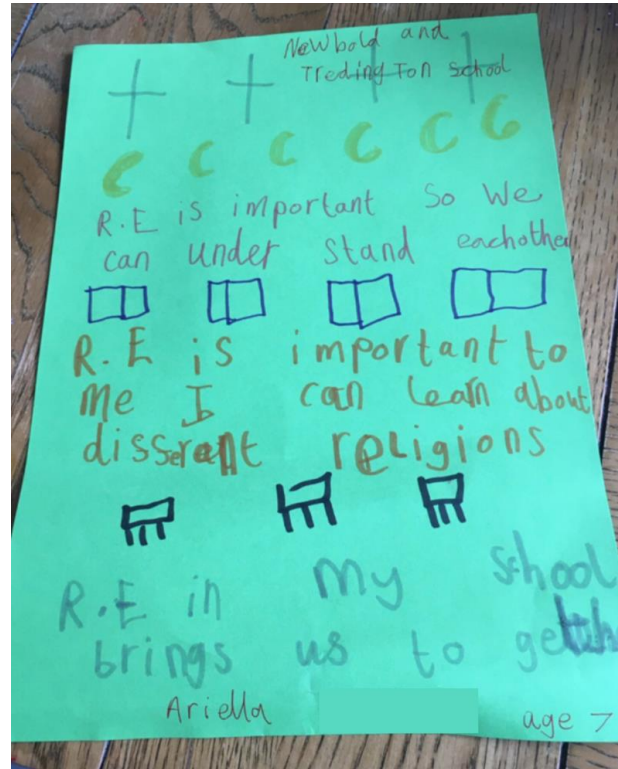 Newbold and
Tredington School
R.E is important so we
can under stand eachother
R.E is important to
me I can learn about
disserent religions
R.E in my school
brings us to
Ariella
age 7